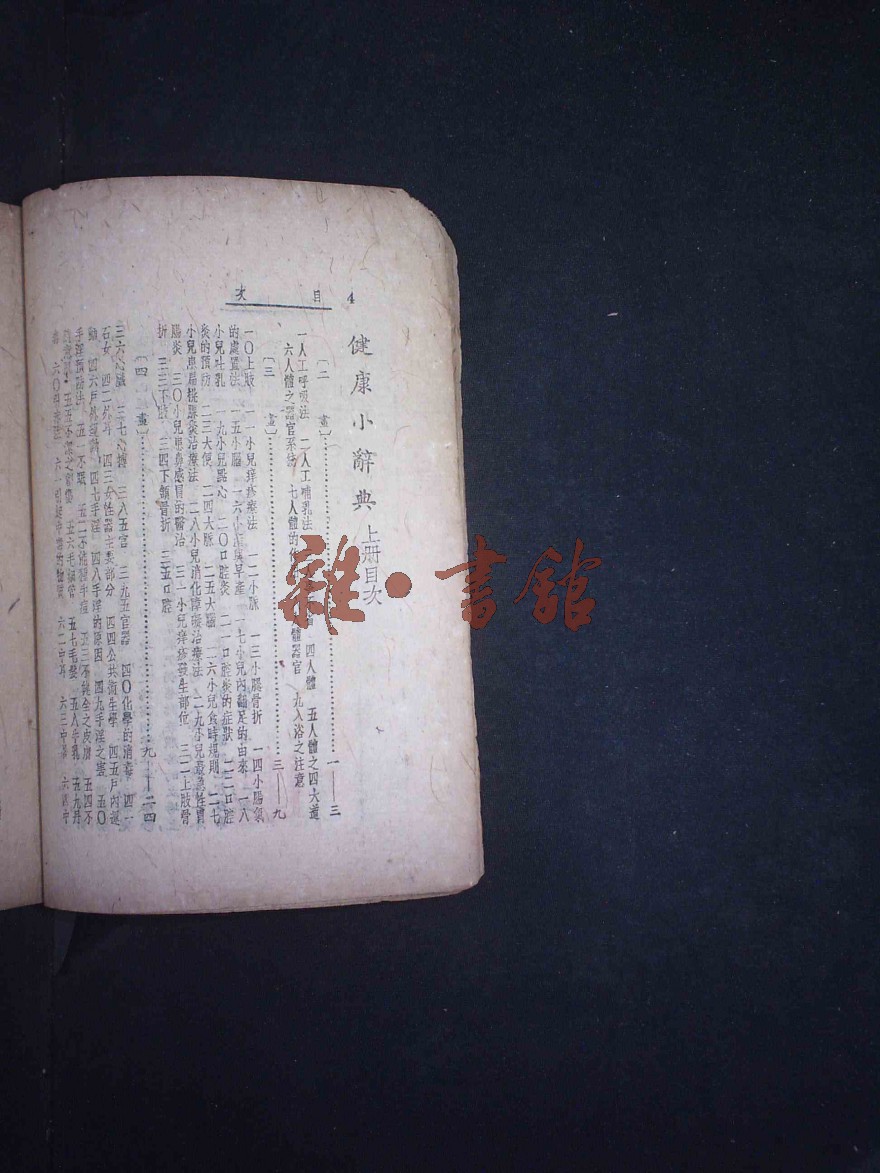 4
目次
健康小辭典 上册目次
〔二 畫〕 一——三
一人工呼吸法 二人工哺乳法 四人體 五人體之四大道
六人體之器官系統 七人體的 體器官 九入浴之注意
〔三 畫〕 三——九
一〇上肢 一一小兒痒疹療法 一二小脈 一三小腿骨折 一四小腸氣
的處置法 一五小腦 一六小產與早產 一七小兒內翻足的由來 一八
小兒吐乳 一九小兒點心 二〇口腔炎 二一口腔炎的症狀 二二口腔
炎的預防 二三大便 二四大脈 二五大腦 二六小兒食時規則 二七
小兒患扁桃腺炎治療法 二八小兒消化障礙治療法 二九小兒最急性胃
腸炎 三〇小兒患鼻感冒的醫治 三一小兒痒疹發生部位 三二上肢骨
折 三三下肢 三四下顎骨折 三五口腔
〔四 畫〕 九——二四
三六心臟 三七心搏 三八五官 三九五官器 四〇化學的消毒 四一
石女 四二外耳 四三女性器主要部分 四四公共衛生學 四五戶內運
動 四六戶外運動 四七手淫 四八手淫的原因 四九手淫之害 五〇
手淫預防法 五一不眠 五三不健全之皮膚 五四不
五七毛髮 五八牛乳 五九丹
毒 六二中耳 六三中暑
雜·書舘